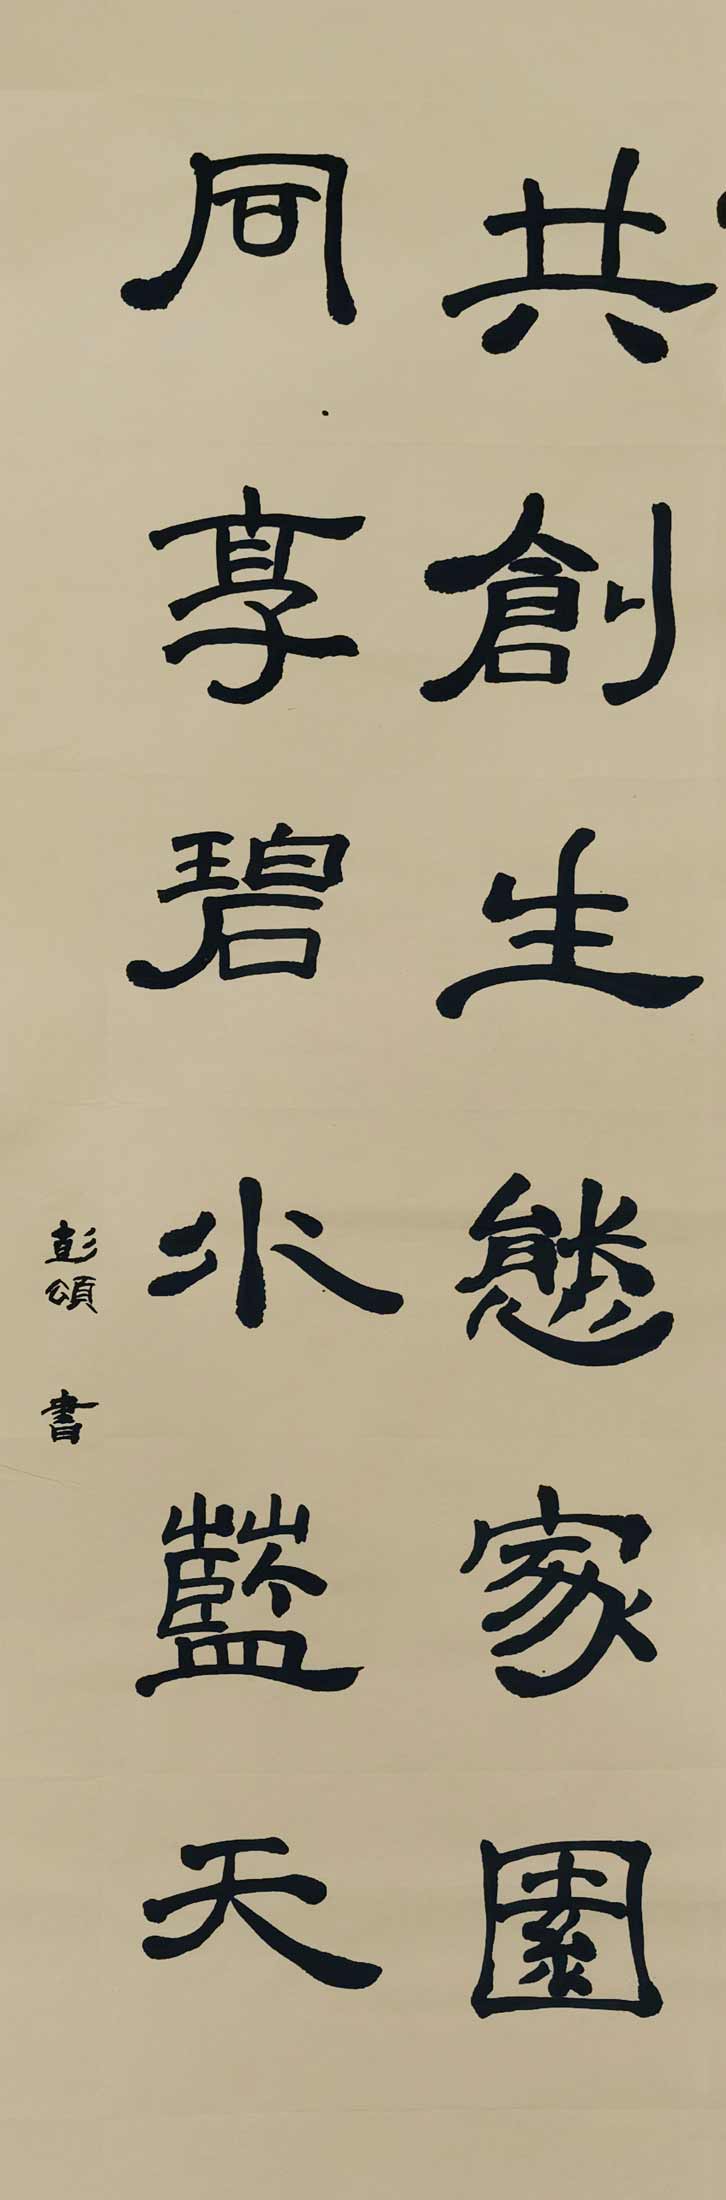 共創生態家園
同享碧水藍天
彭頌 書